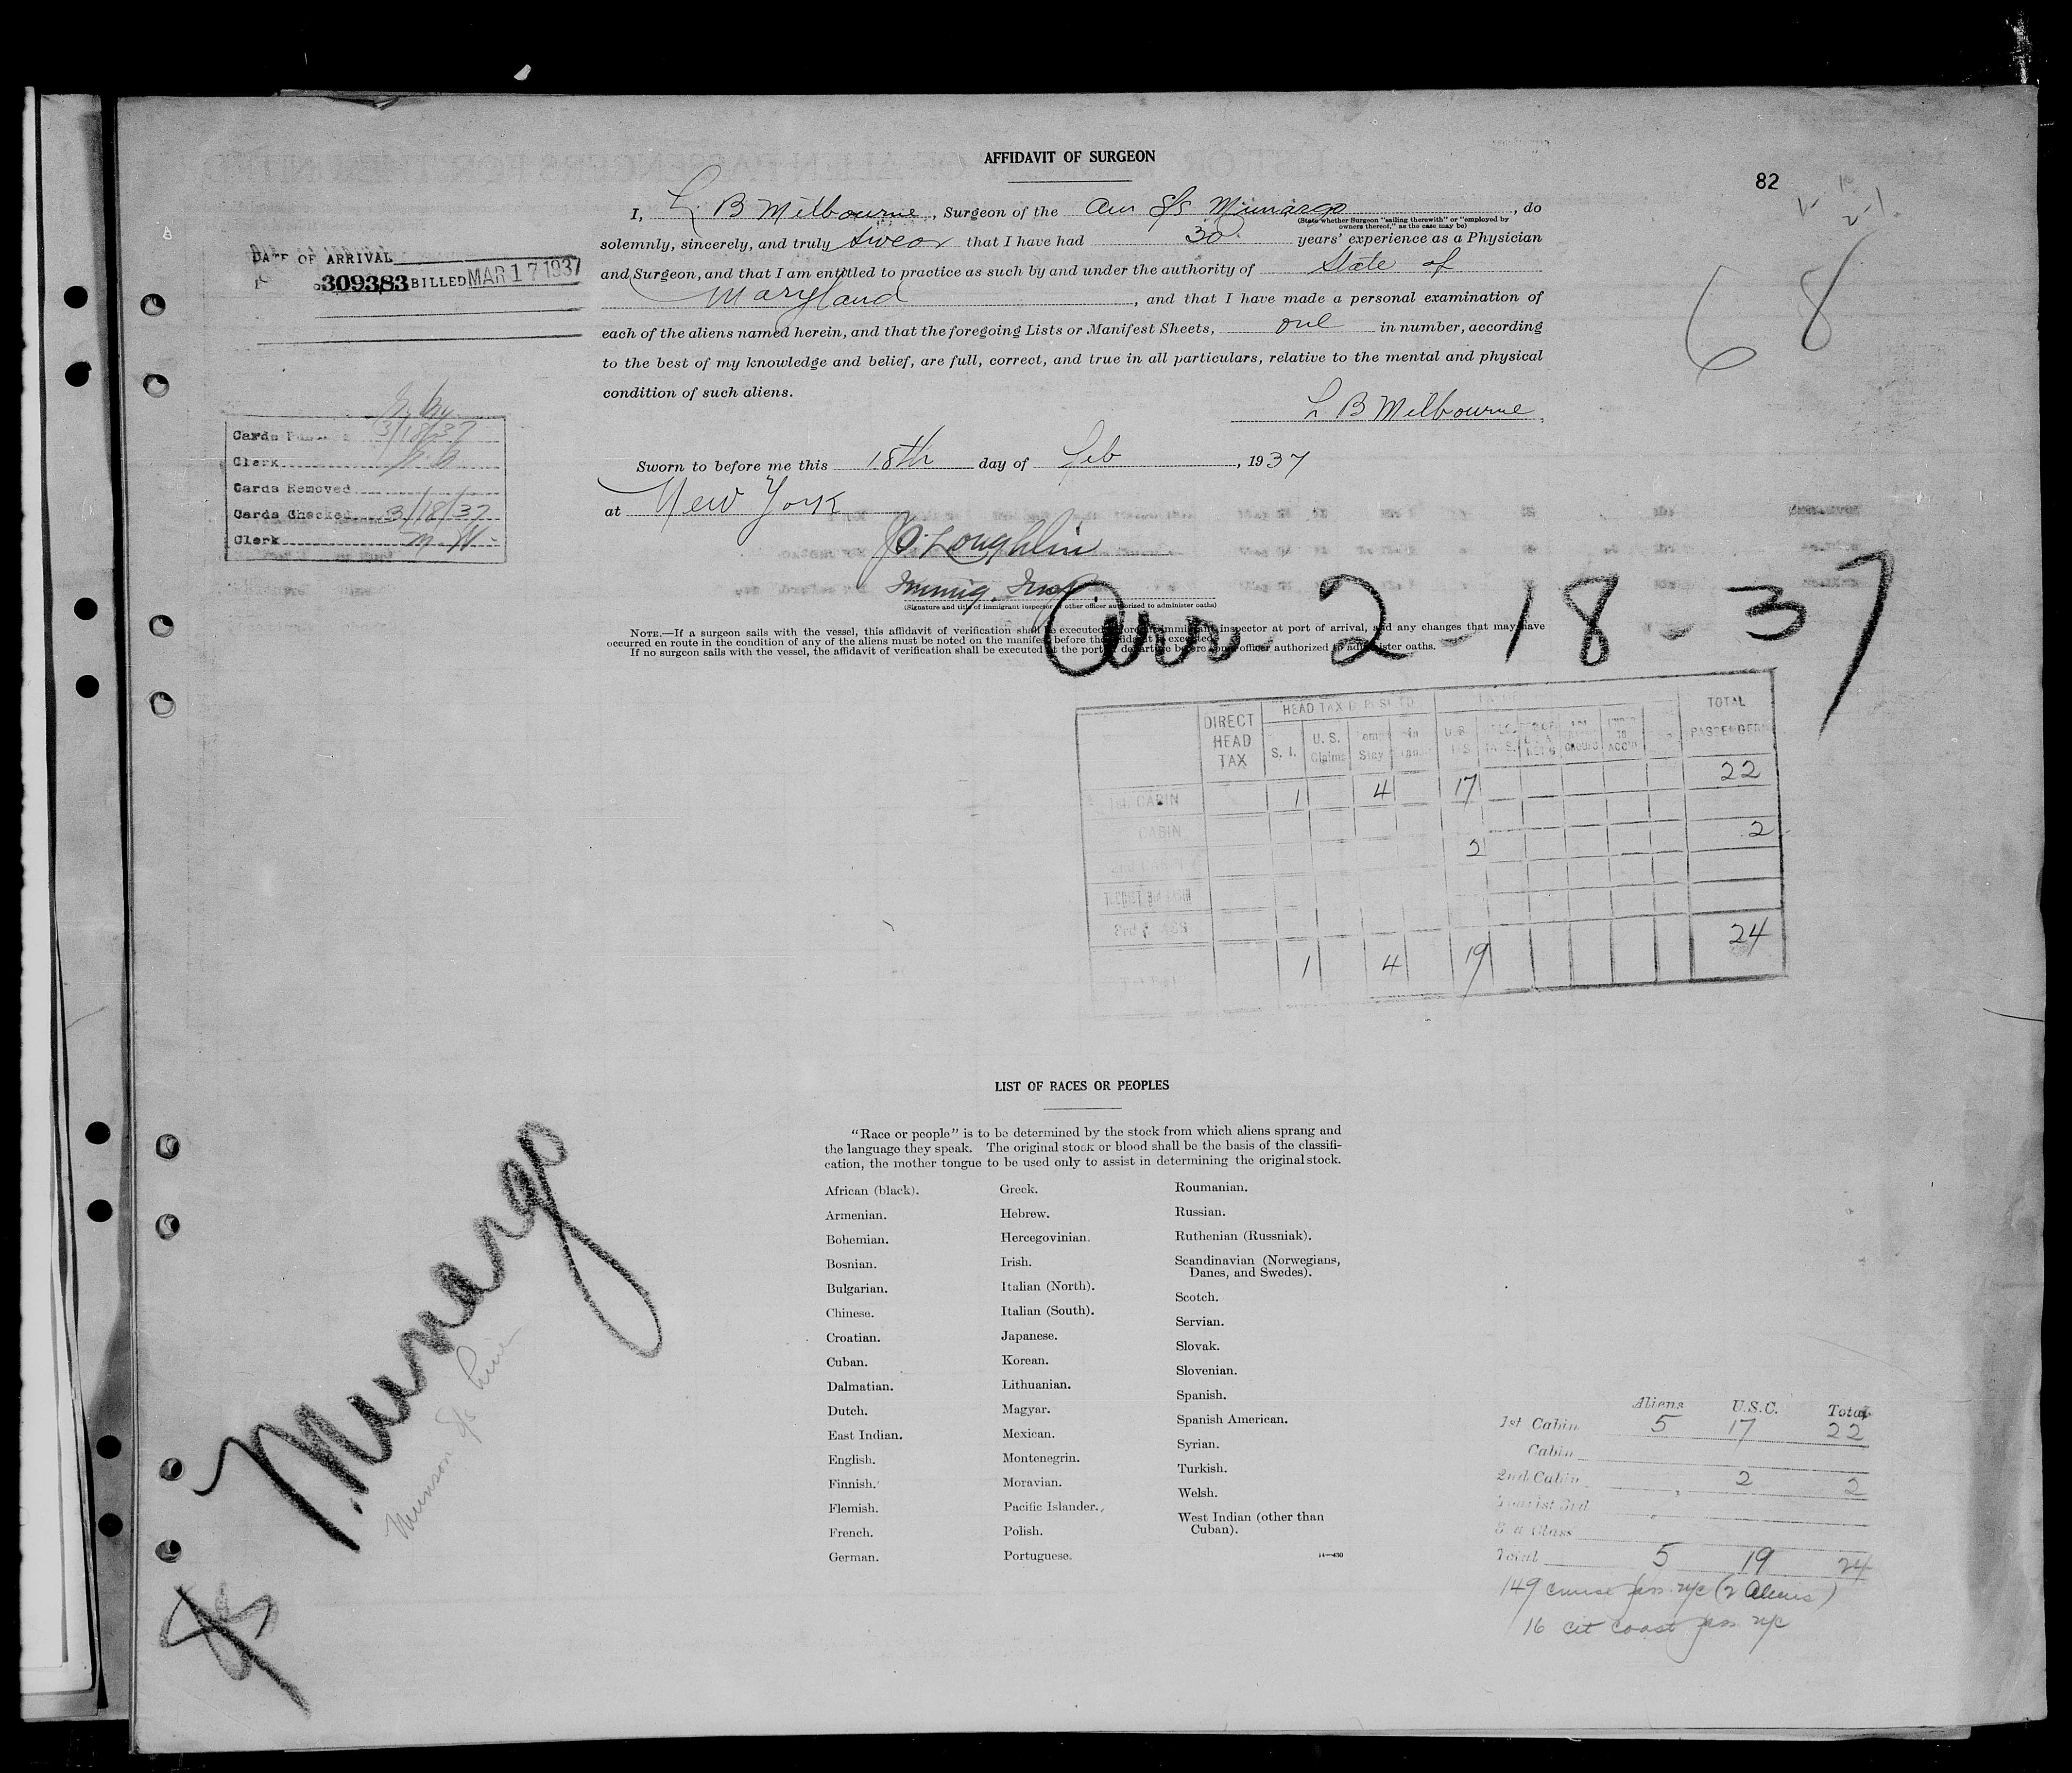 AFFIDAVIT OF SURGEON
82
I, L. B Milbourne, Surgeon of the Am S/S Munargo, do
(State whether Surgeon "sailing therewith" or "employed by
owners thereof," as the case may be)
solemnly, sincerely, and truly swear that I have had 30 years' experience as a Physician
and Surgeon, and that I am entitled to practice as such by and under the authority of State of
Maryland, and that I have made a personal examination of
each of the aliens named herein, and that the foregoing Lists or Manifest Sheets, one in number, according
to the best of my knowledge and belief, are full, correct, and true in all particulars, relative to the mental and physical
condition of such aliens.
L B Milbourne
Sworn to before me this 18th day of Feb, 1937
at New York
J O'Loughlin
Immig. Insp
(Signature and title of immigrant inspector or other officer authorized to administer oaths)
NOTE.—If a surgeon sails with the vessel, this affidavit of verification shall be executed before immigrant inspector at port of arrival, and any changes that may have
occurred en route in the condition of any of the aliens must be noted on the manifest before the affidavit is executed.
If no surgeon sails with the vessel, the affidavit of verification shall be executed at the port of departure before some officer authorized to administer oaths.
DATE OF ARRIVAL
309383 BILLED MAR 17 1937
Cards 3/18/37
Clerk
Cards Removed
Cards Checked 3/18/37
Clerk M W
68
Arr 2-18-37
DIRECT HEAD TAX
HEAD TAX DEPOSITED
S. I.
U. S. Claims
Temp Stay
TOTAL PASSENGERS
1st CABIN 1 4 17 22
CABIN
2nd CABIN 2 2
TOURIST 3rd CABIN
3rd CLASS
1 4 19 24
LIST OF RACES OR PEOPLES
"Race or people" is to be determined by the stock from which aliens sprang and
the language they speak. The original stock or blood shall be the basis of the classifi-
cation, the mother tongue to be used only to assist in determining the original stock.
African (black).
Armenian.
Bohemian.
Bosnian.
Bulgarian.
Chinese.
Croatian.
Cuban.
Dalmatian.
Dutch.
East Indian.
English.
Finnish.
Flemish.
French.
German.
Greek.
Hebrew.
Hercegovinian.
Irish.
Italian (North).
Italian (South).
Japanese.
Korean.
Lithuanian.
Magyar.
Mexican.
Montenegrin.
Moravian.
Pacific Islander.
Polish.
Portuguese.
Roumanian.
Russian.
Ruthenian (Russniak).
Scandinavian (Norwegians,
Danes, and Swedes).
Scotch.
Servian.
Slovak.
Slovenian.
Spanish.
Spanish American.
Syrian.
Turkish.
Welsh.
West Indian (other than
Cuban).
14—430
Munargo
Munson S/S Line
Aliens U.S.C. Total
1st Cabin 5 17 22
Cabin
2nd Cabin 2 2
Tourist 3rd
3rd Class
Total 5 19 24
149 cruise pass. n/c (2 Aliens)
16 cit coast pass n/c